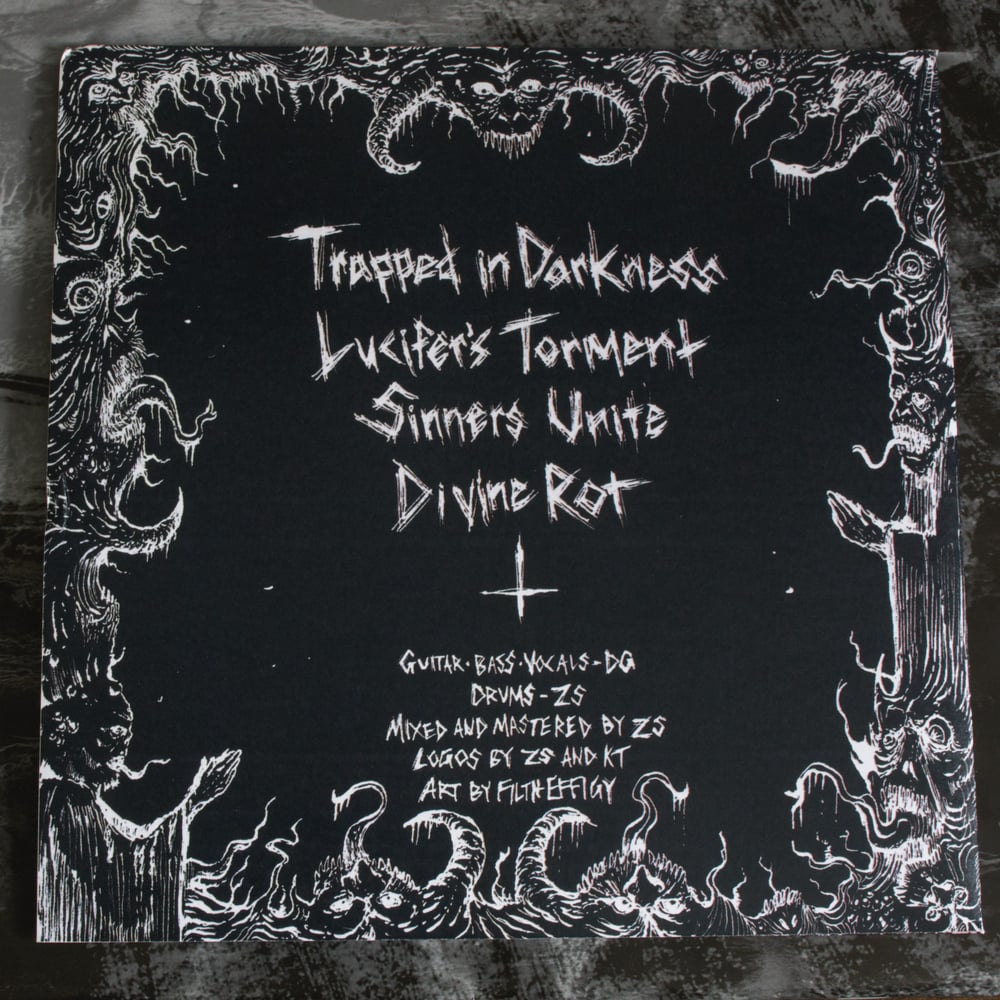 Trapped in Darkness
Lucifer's Torment
Sinners Unite
Divine Rot
GUITAR · BASS · VOCALS - DG
DRUMS - ZS
MIXED AND MASTERED BY ZS
LOGOS BY ZS AND KT
ART BY FILTH EFFIGY